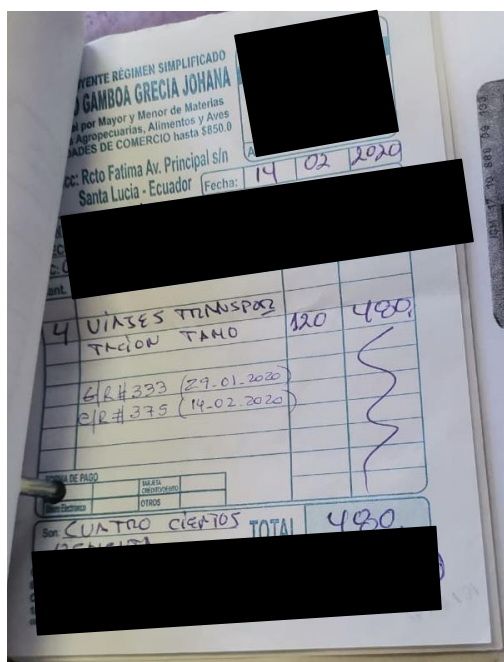 YENTE RÉGIMEN SIMPLIFICADO
GAMBOA GRECIA JOHANA
por Mayor y Menor de Materias
Agropecuarias, Alimentos y Aves
DADES DE COMERCIO hasta $850.0
cc: Rcto Fatima Av. Principal s/n
Santa Lucia - Ecuador
Fecha: 14 02 2020
ant.
4 VIAJES TRANSPOR 120 480.
TACION TAMO
G/R # 333 (29-01-2020)
G/R # 375 (14-02-2020)
FORMA DE PAGO
TARJETA CRÉDITO/DÉBITO
Dinero Electrónico
OTROS
Son: CUATRO CIENTOS
TOTAL 480.